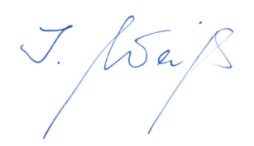 J. Weiß